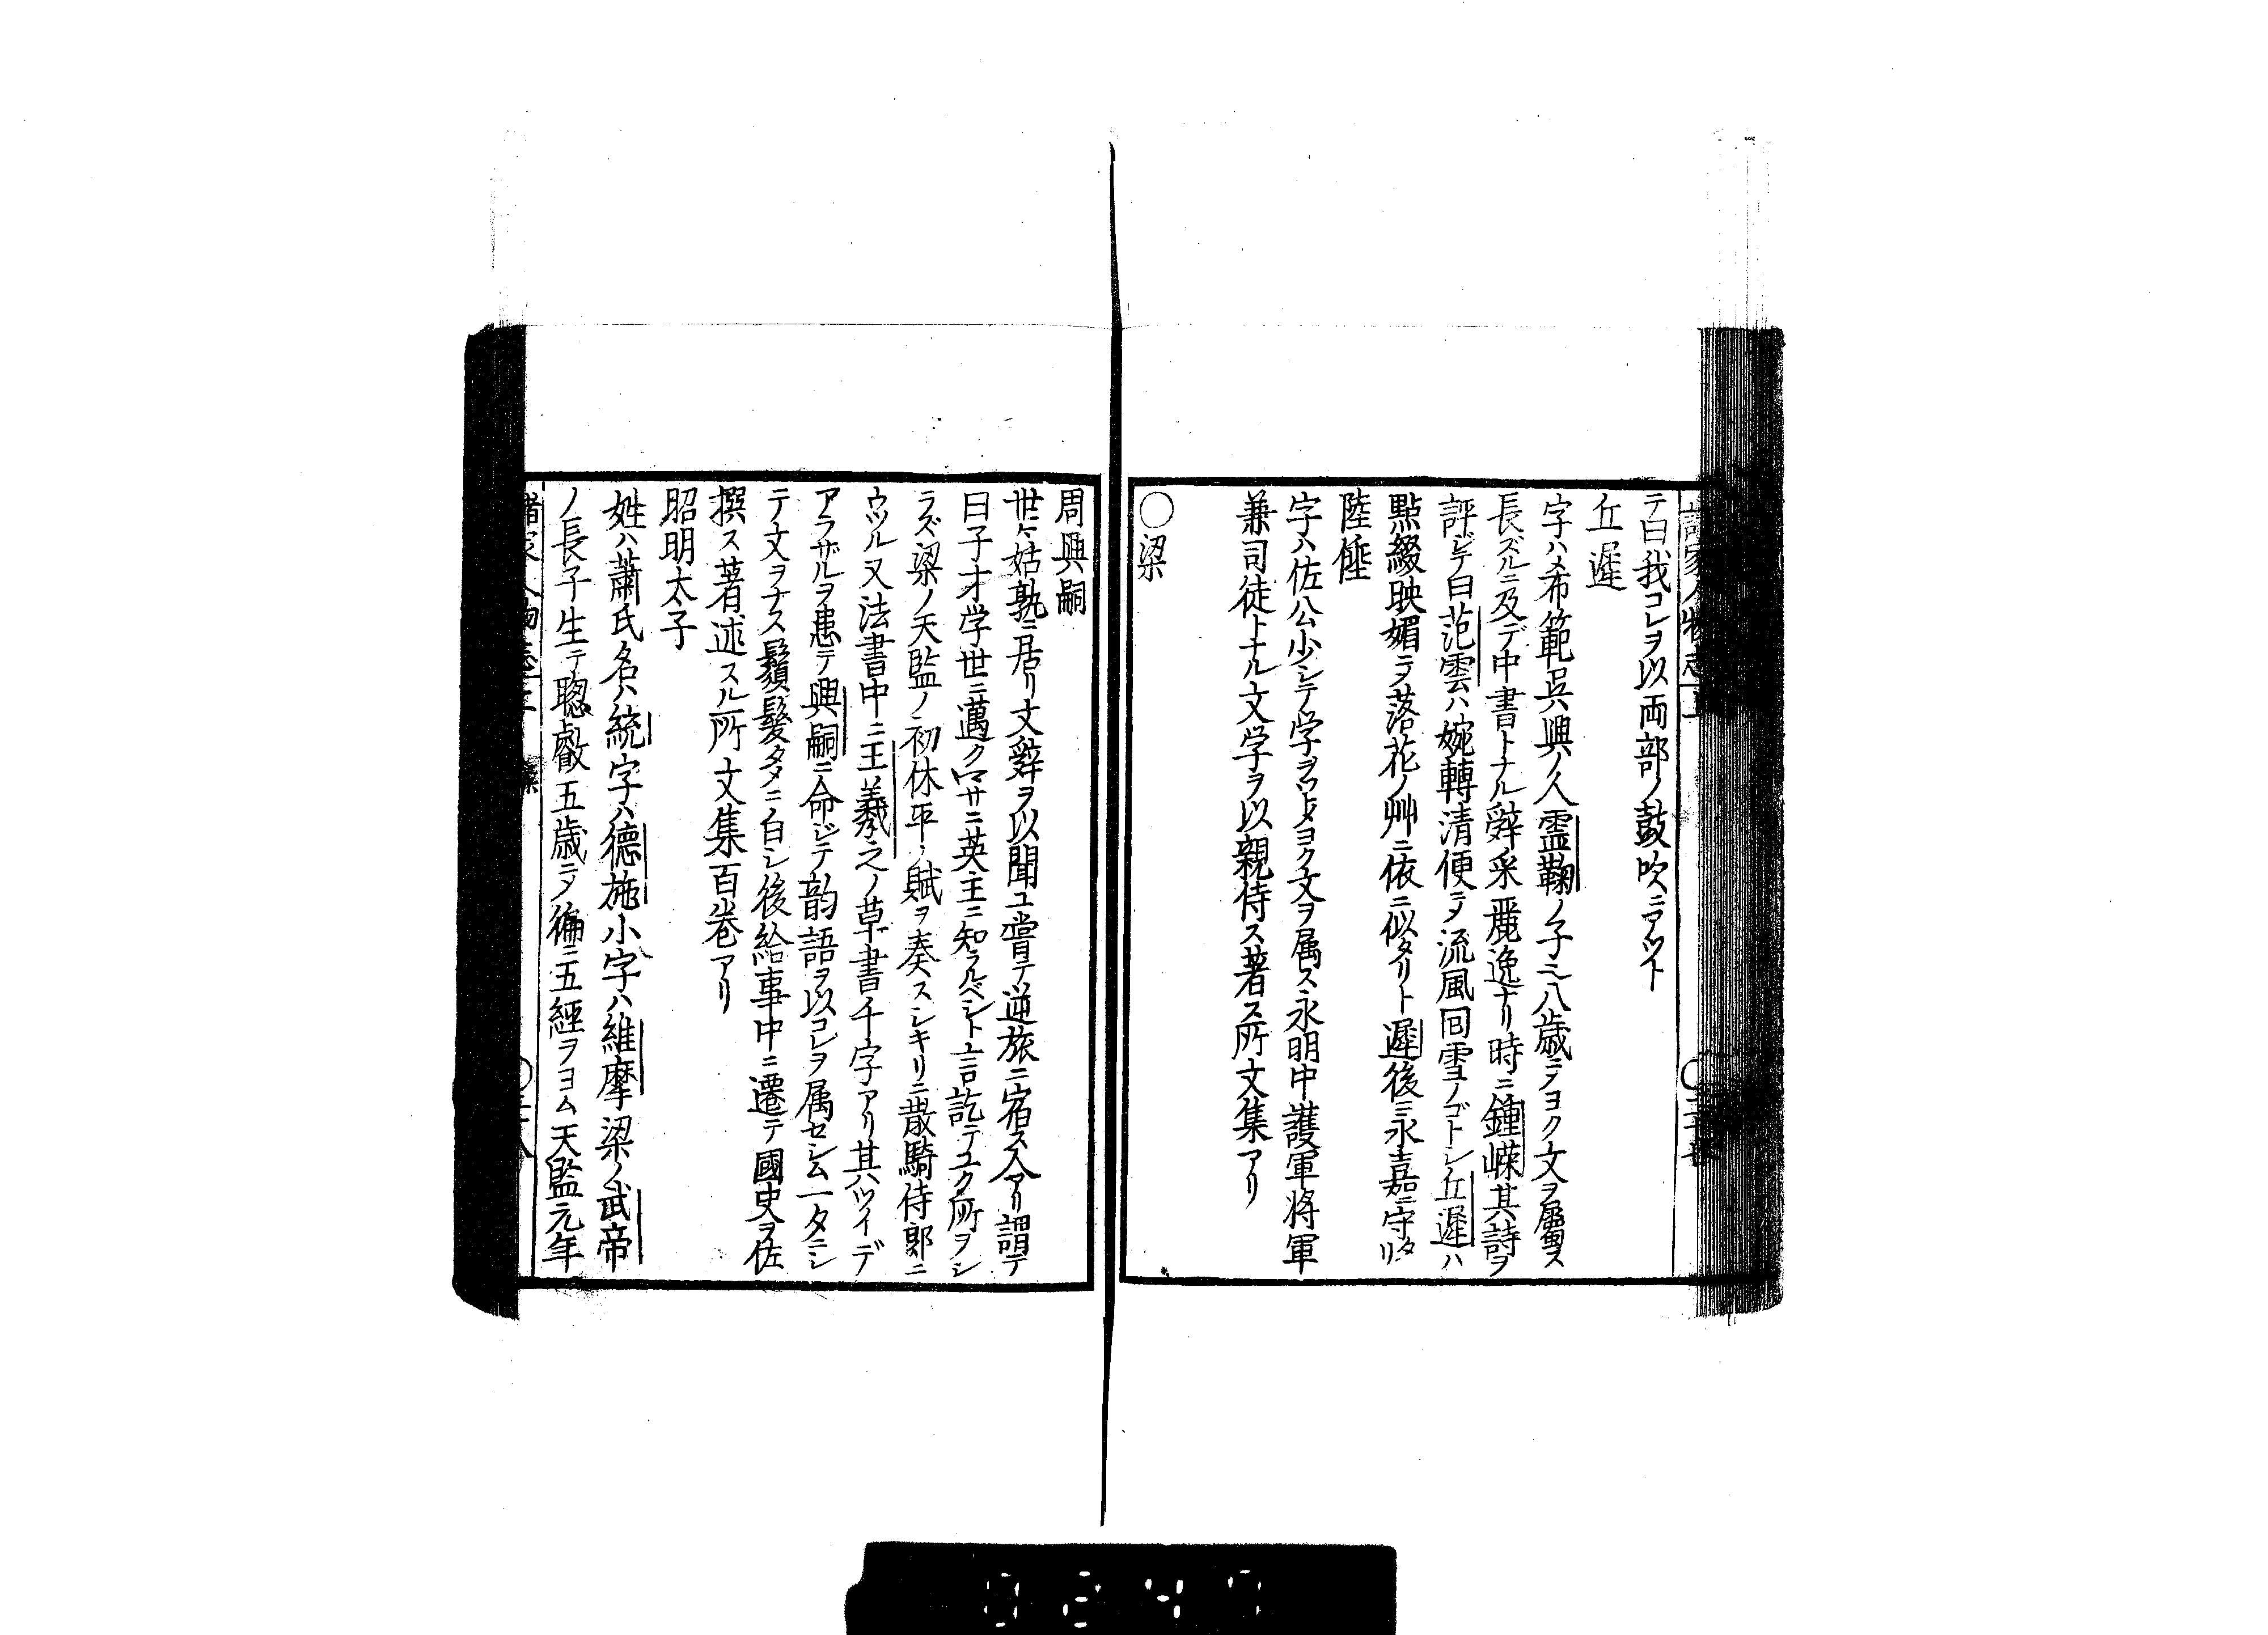 テ曰我コレヲ以両部ノ鼓吹ニアツト
丘遲
字ハ希範呉興ノ人霊鞠ノ子ニ八歳ニヲヨク文ヲ属ス
長ズルニ及デ中書トナル辭采麗逸ナリ時ニ鍾嶸其詩ヲ
評ジテ曰范雲ハ婉轉清便ニヲ流風回雪ノゴトシ丘遲ハ
點綴映媚ニヲ落花ノ艸ニ依ニ似タリト遲後ニ永嘉ニ守タリ
陸倕
字ハ佐公少シテ学ヲツトメヨク文ヲ属ス永明中護軍将軍
兼司徒トナル文学ヲ以親侍ス著ス所文集アリ
〇梁
周興嗣
世ヽ姑孰ニ居リ文辭ヲ以聞ユ嘗テ逆旅ニ宿ス人アリ謂テ
曰子才学世ニ邁クロサニ英主ニ知ラルベシト言訖テユク所ヲシ
ラズ梁ノ天監ノ初休平ノ賦ヲ奏スシキリニ散騎侍郎ニ
ウツル又法書中ニ王羲之ノ草書千字アリ其ハツイデ
アラザルヲ患テ興嗣ニ命ジテ韵語ヲ以コレヲ属セシム一タニシ
テ文ヲナス鬚髮タメニ白シ後給事中ニ遷テ國史ヲ佐
撰ス著述スル所文集百巻アリ
昭明太子
姓ハ蕭氏名ハ統字ハ德施小字ハ維摩梁ノ武帝
ノ長子生テ聰叡五歳ニヲ徧ニ五經ヲヨム天監元年